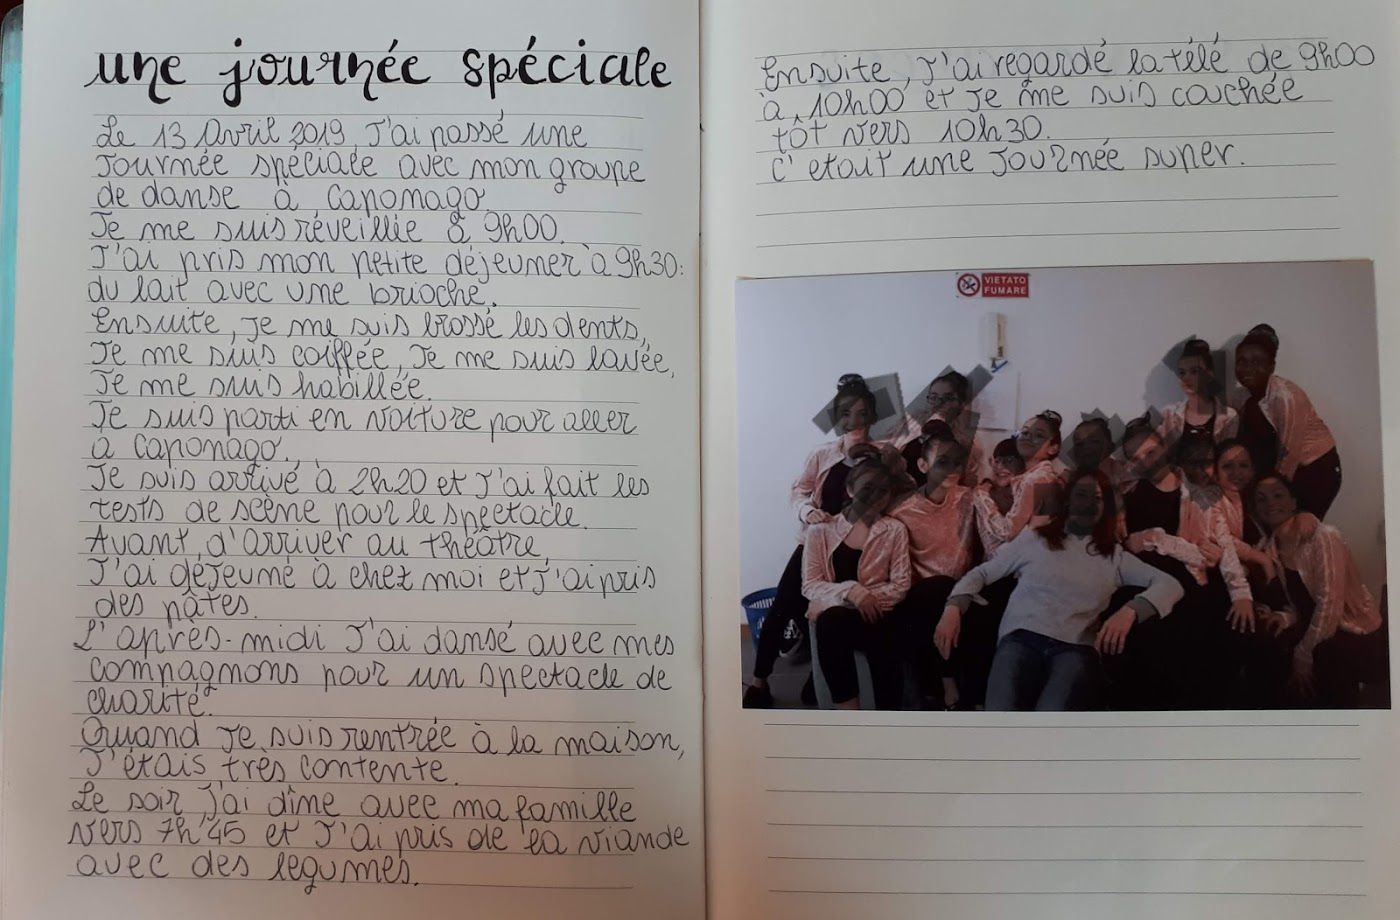 une journée spéciale
Le 13 Avril 2019, J'ai passé une
Journée spéciale avec mon groupe
de danse à Caponago
Je me suis réveillée à 9h00.
J'ai pris mon petite déjeuner à 9h30:
du lait avec une brioche.
Ensuite, je me suis brossé les dents,
Je me suis coiffée, Je me suis lavée,
Je me suis habillée.
Je suis parti en voiture pour aller
à Caponago.
Je suis arrivé à 2h20 et J'ai fait les
tests de scène pour le spectacle.
Avant, d'arriver au théâtre,
J'ai déjeuné à chez moi et j'ai pris
des pâtes.
L'après-midi J'ai dansé avec mes
compagnons pour un spectacle de
charité.
Quand Je suis rentrée à la maison,
J'étais très contente.
Le soir, j'ai dîme avec ma famille
vers 7h'45 et J'ai pris de la viande
avec des legumes.
Ensuite, J'ai regardé la télé de 9h00
à 10h00 et Je me suis couchée
tôt vers 10h30.
C'etait une Journée super.
VIETATO
FUMARE